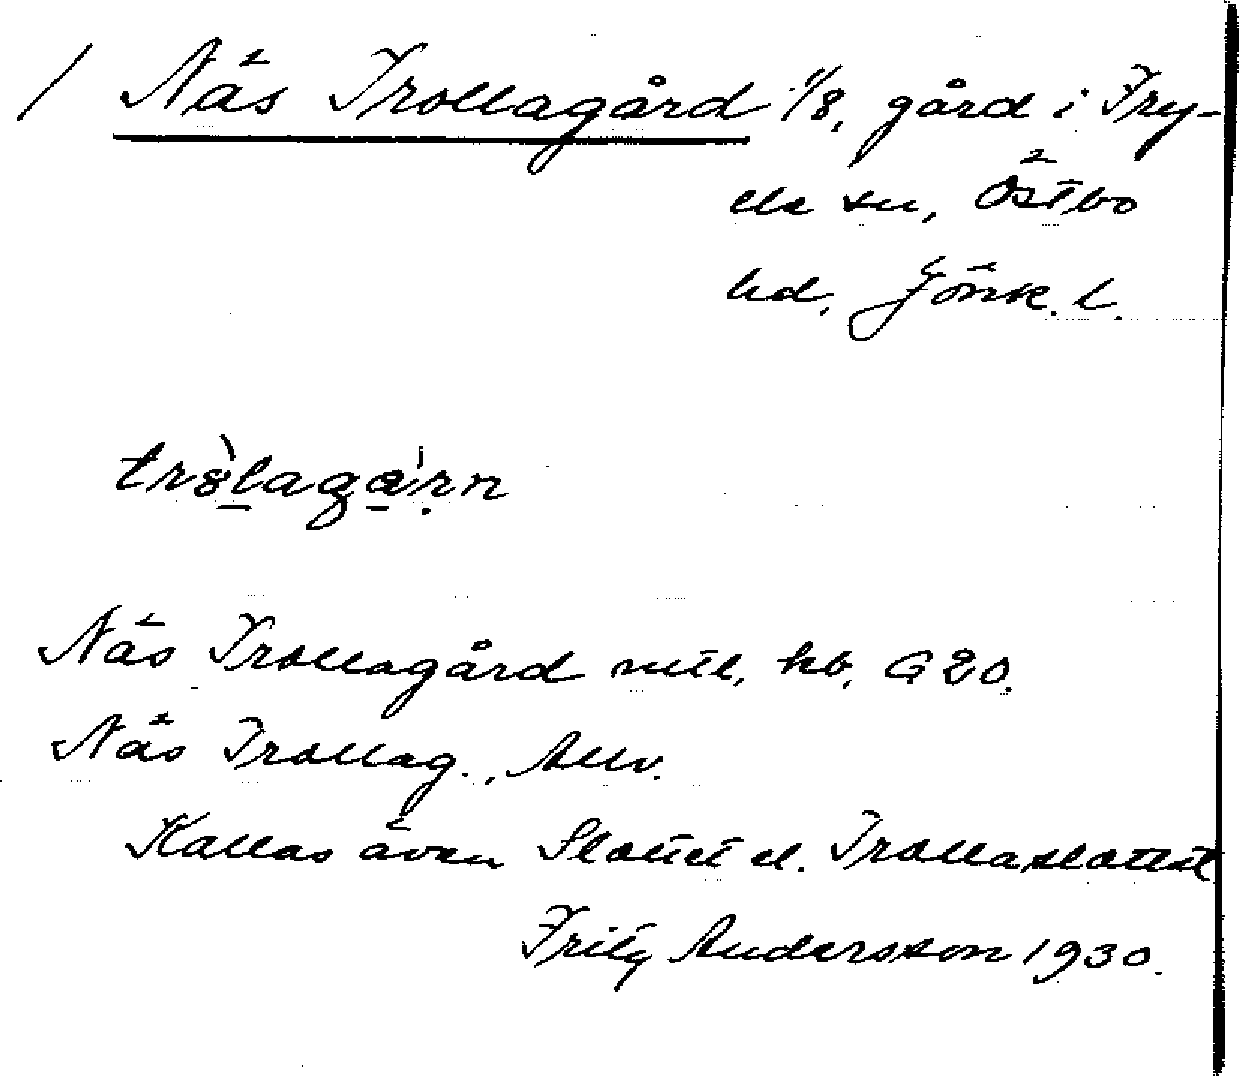 / Näs Trollagård 1/8, gård i Fry-
ele sn, Östbo
hd, Jönk. l.
Näs Trollagård mtl, hb, G 20.
Näs Trollag., Allv.
Kallas även Slottet el. Trollaslottet
Fritz Andersson 1930.